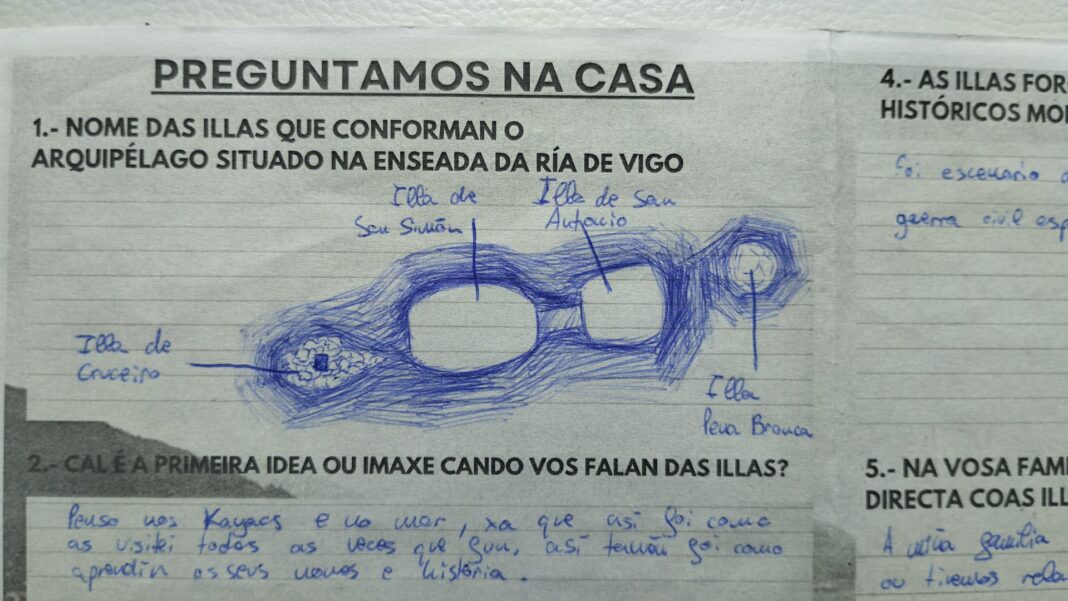 PREGUNTAMOS NA CASA
1.- NOME DAS ILLAS QUE CONFORMAN O
ARQUIPÉLAGO SITUADO NA ENSEADA DA RÍA DE VIGO
Illa de
San Simón
Illa de San
Antonio
Illa de
Cruceiro
Illa
Pena Branca
2.- CAL É A PRIMEIRA IDEA OU IMAXE CANDO VOS FALAN DAS ILLAS?
Penso nos Kayacs e no mar, xa que así foi como
as visitei todas as veces que fun, así tamén foi como
aprendín os seus nomes e história.
4.- AS ILLAS FOR
HISTÓRICOS
Foi escenario
guerra civil esp
5.- NA VOSA FAMI
DIRECTA COAS ILL
A miña familia
ou tivemos rela